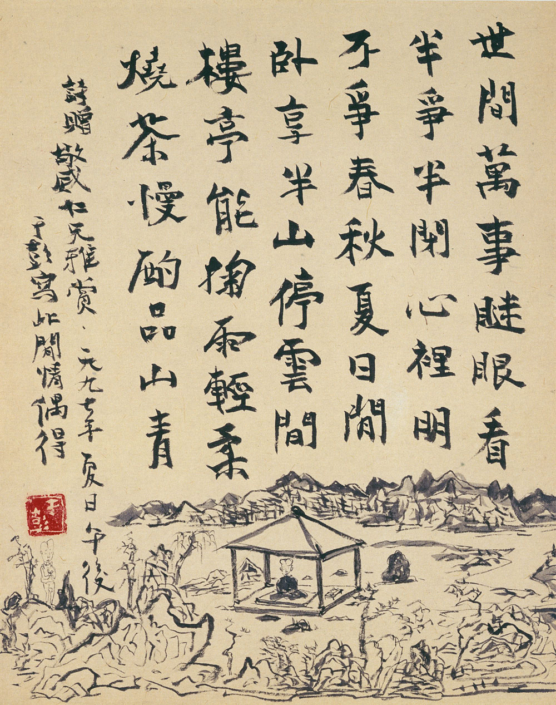 世間萬事瞇眼看
半爭半閉心裡明
不爭春秋夏日閒
卧享半山停雲間
樓亭能掬雨輕柔
燒茶慢酌品山青
詩贈敬威仁兄雅賞．一九九七年夏日午後
于彭寫此閒情偶得
于彭